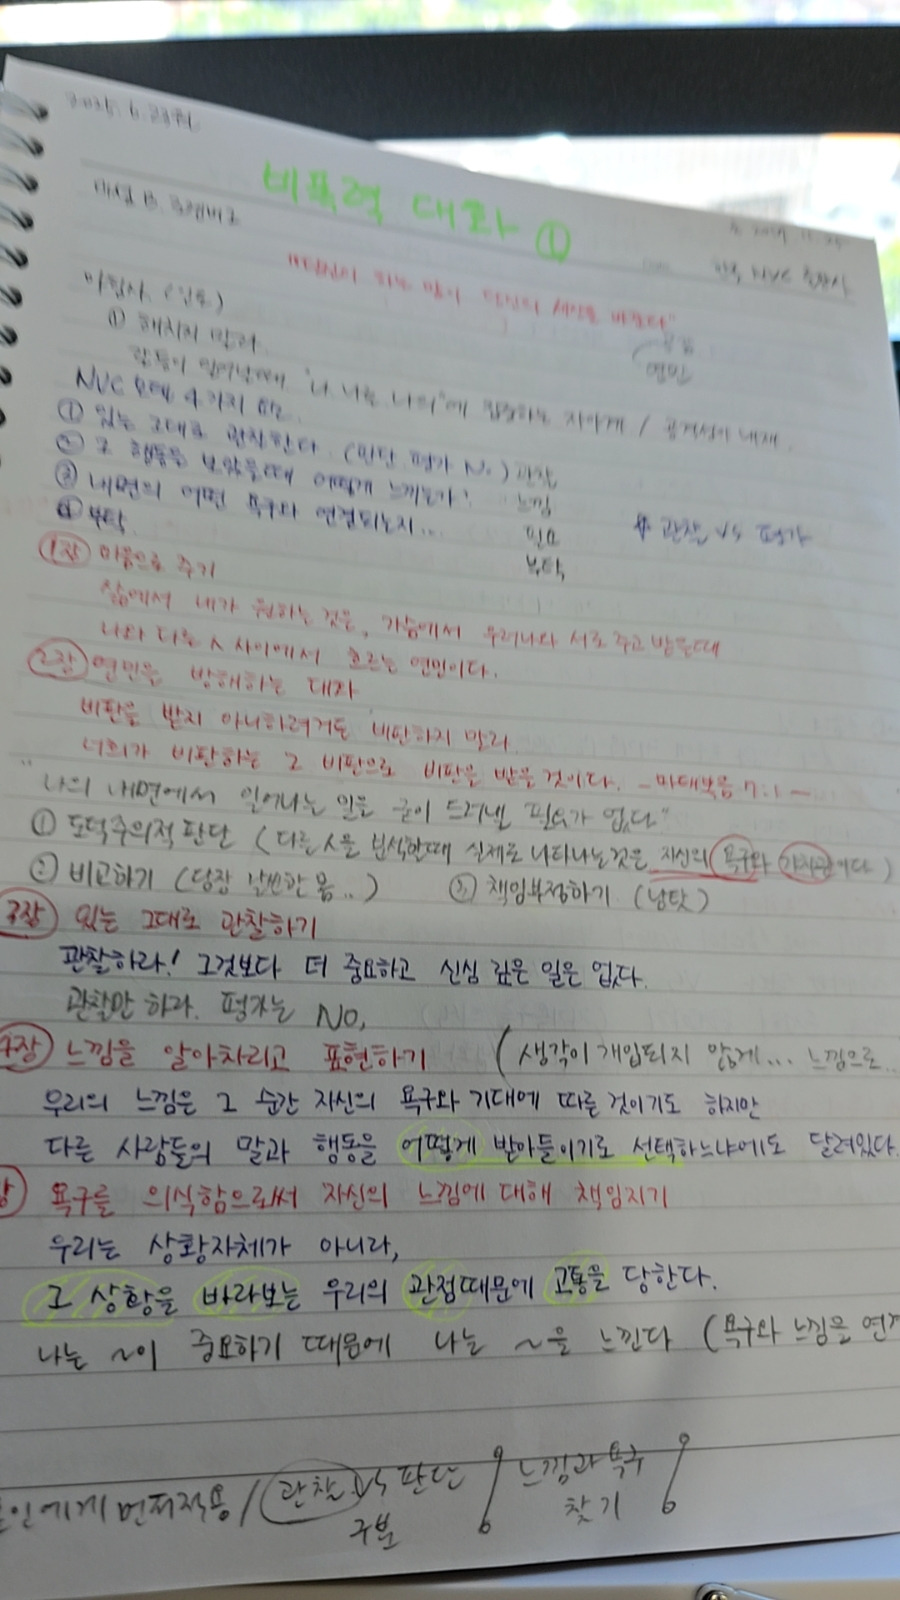 비폭력 대화 ①
마셜 B. 로젠버그
한국 NVC 출판사
"당신이 하는 말이 당신의 세상을 바꾼다"
아힘사 (인도)
공감
연민
① 해치지 말라.
갈등이 일어날때에 "나, 너는, 나의"에 집착하는 자아에게 / 공격성이 내재.
NVC 모델 4가지 요소.
① 있는 그대로 관찰한다. (판단 평가 No.) 관찰
② 그 행동을 보았을때 어떻게 느끼는가? 느낌
③ 내면의 어떤 욕구와 연결되는지... 필요
관찰 VS 평가
④ 부탁. 부탁
1장 마음으로 주기
삶에서 내가 원하는 것은, 가슴에서 우러나와 서로 주고 받을때
나와 다른 人 사이에서 흐르는 연민이다.
2장 연민을 방해하는 대화
비판을 받지 아니하려거든 비판하지 말라.
너희가 비판하는 그 비판으로 비판을 받을 것이다. - 마태복음 7:1 -
"나의 내면에서 일어나는 일을 굳이 드러낼 필요가 없다"
① 도덕주의적 판단 (다른 人을 분석할때 실제로 나타나는것은 자신의 욕구와 가치관이다)
② 비교하기 (당장 날씬한 몸..) ③ 책임부정하기 (남탓)
3장 있는 그대로 관찰하기
관찰하라! 그것보다 더 중요하고 신심 깊은 일은 없다.
관찰만 하라. 평가는 No,
4장 느낌을 알아차리고 표현하기 (생각이 개입되지 않게... 느낌으로..
우리의 느낌은 그 순간 자신의 욕구와 기대에 따른 것이기도 하지만
다른 사람들의 말과 행동을 어떻게 받아들이기로 선택하느냐에도 달려있다.
장 욕구를 의식함으로써 자신의 느낌에 대해 책임지기
우리는 상황자체가 아니라,
그 상황을 바라보는 우리의 관점때문에 고통을 당한다.
나는 ~이 중요하기 때문에 나는 ~을 느낀다 (욕구와 느낌을 연결
본인에게 먼저적용 / 관찰 VS 판단 구분
느낌과 욕구 찾기